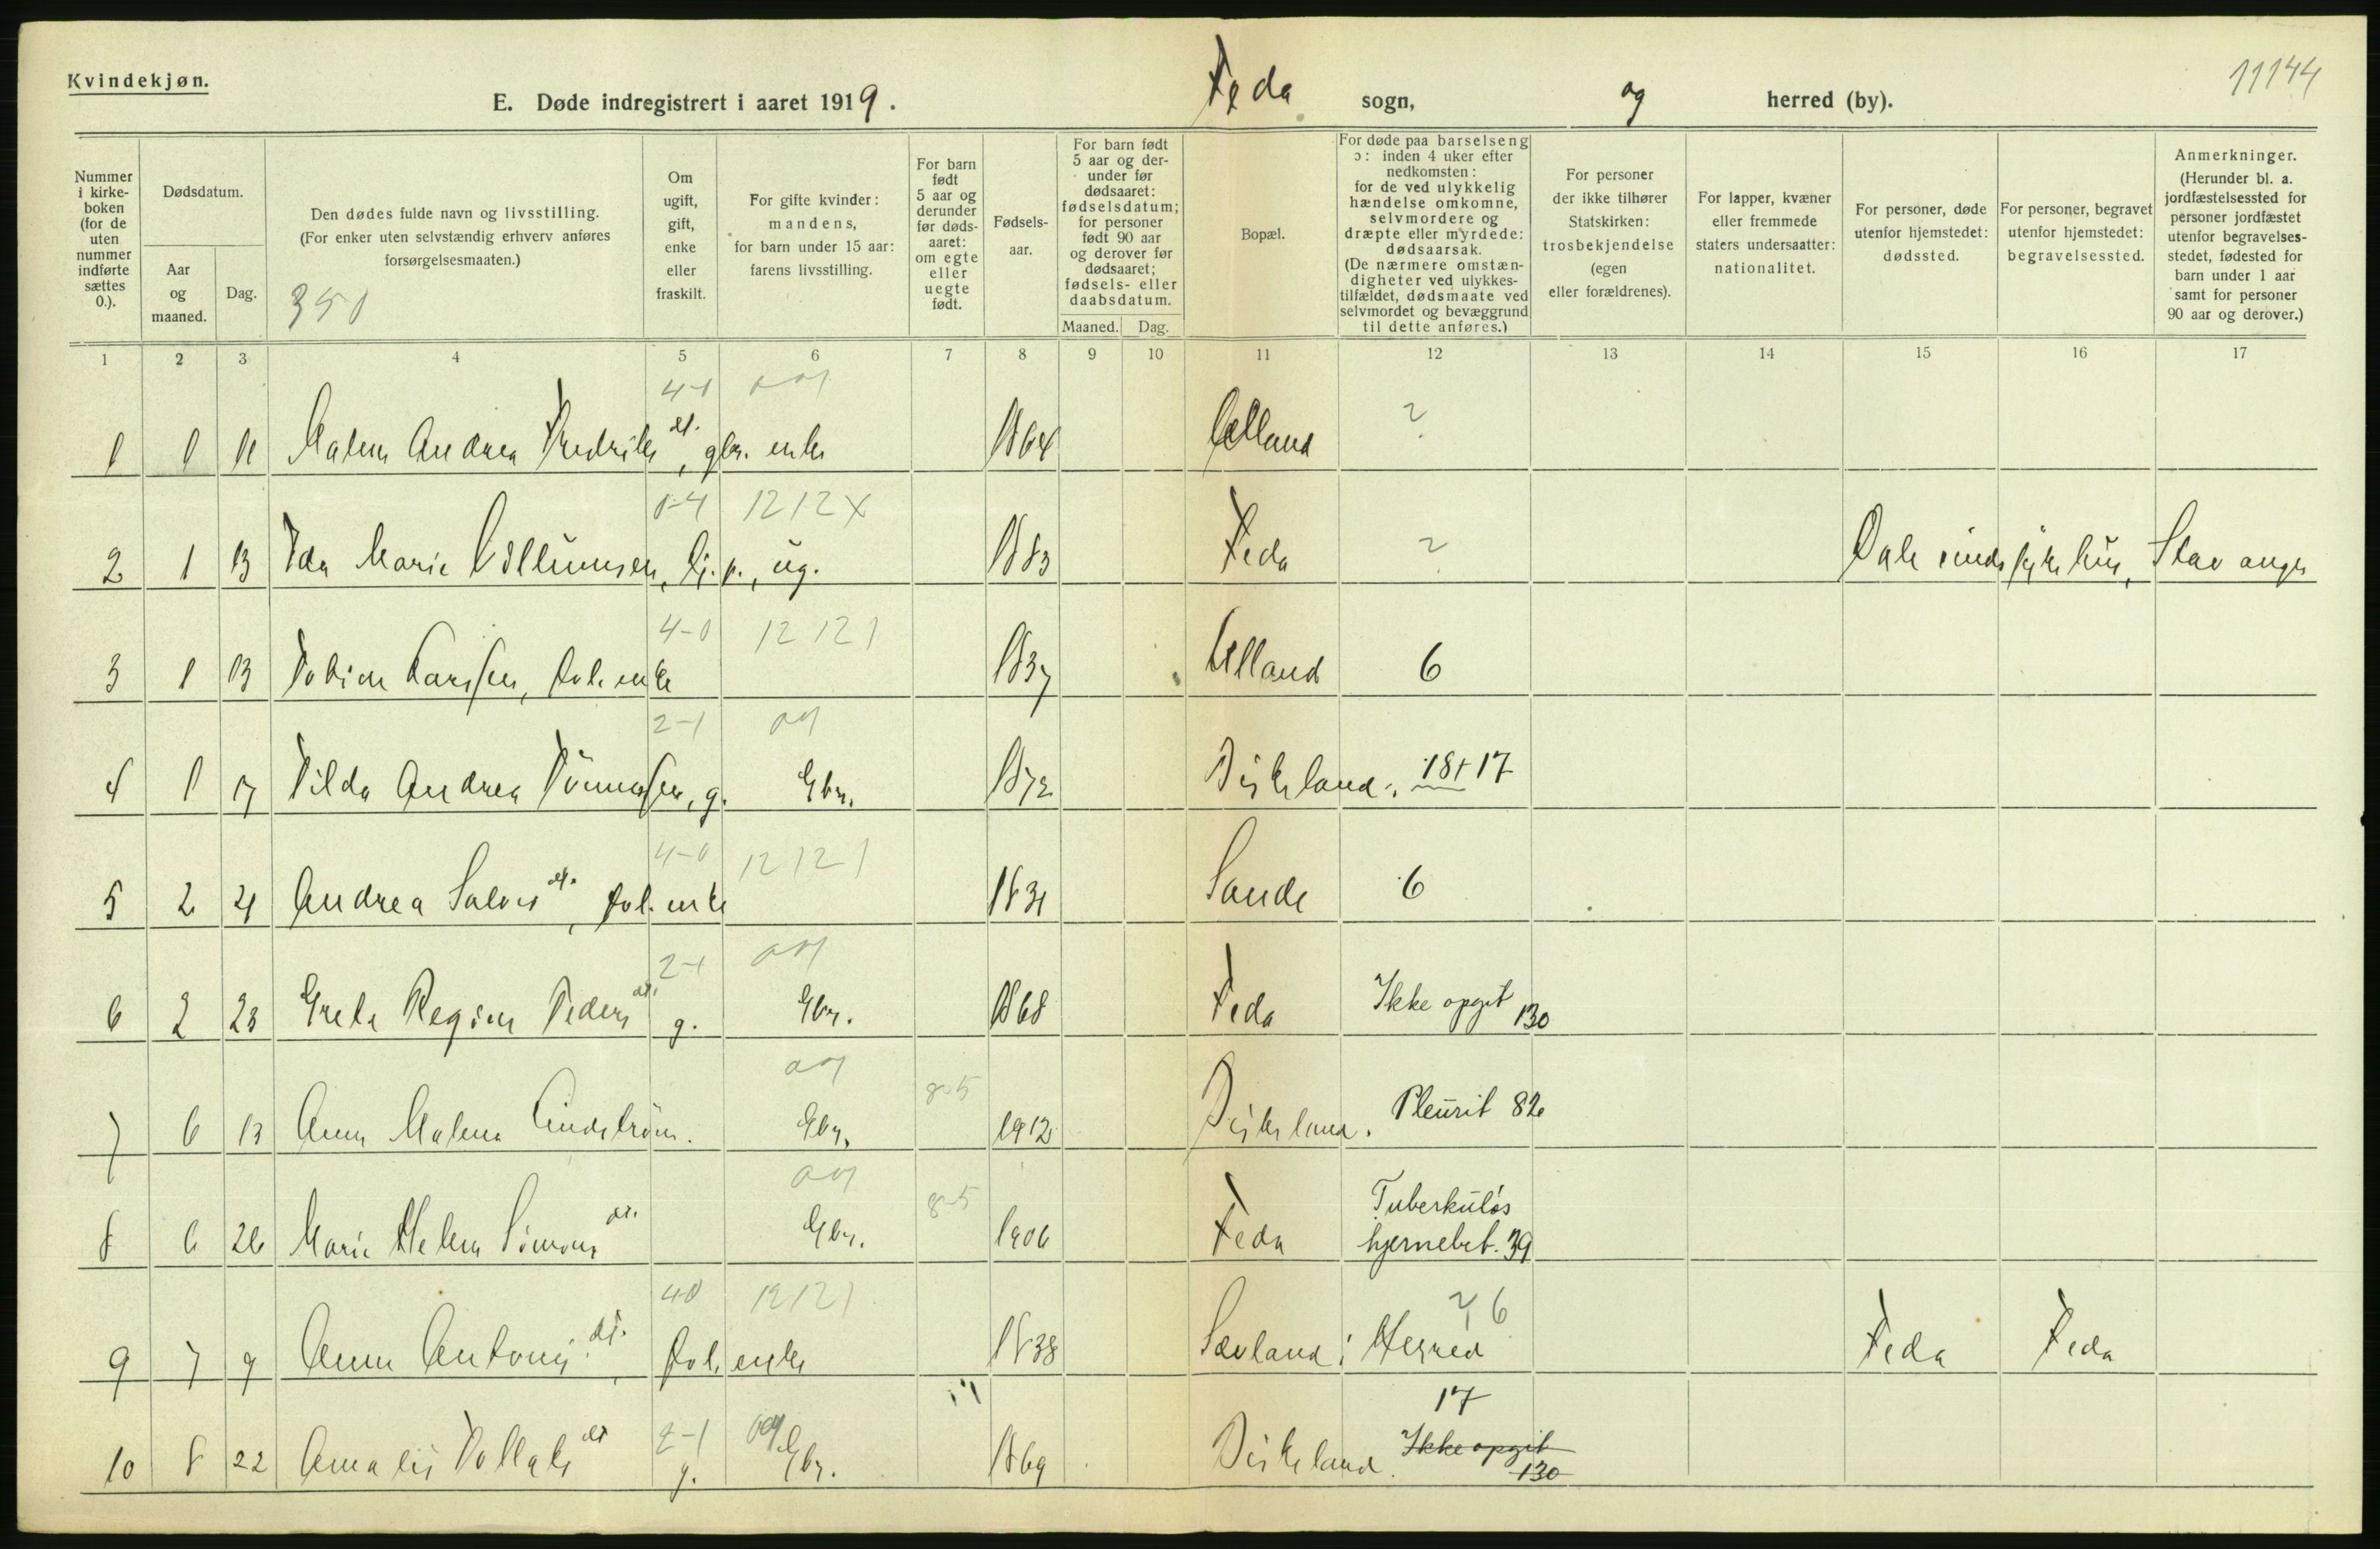 Kvindekjøn.
11144
E. Døde indregistrert i aaret 1919. Feda sogn, og herred (by).
Nummer i kirkeboken (for de uten nummer indførte sættes 0.).
Dødsdatum.
Aar og maaned.
Dag.
Den dødes fulde navn og livsstilling.
(For enker uten selvstændig erhverv anføres forsørgelsesmaaten.)
350
Om ugift, gift, enke eller fraskilt.
For gifte kvinder: mandens, for barn under 15 aar: farens livsstilling.
For barn født 5 aar og derunder før dødsaaret: om egte eller uegte født.
Fødselsaar.
For barn født 5 aar og derunder før dødsaaret: fødselsdatum; for personer født 90 aar og derover før dødsaaret; fødsels- eller daabsdatum.
Maaned. Dag.
Bopæl.
For døde paa barselseng ɔ: inden 4 uker efter nedkomsten: for de ved ulykkelig hændelse omkomne, selvmordere og dræpte eller myrdede: dødsaarsak. (De nærmere omstændigheter ved ulykkestilfældet, dødsmaate ved selvmordet og bevæggrund til dette anføres.)
For personer der ikke tilhører Statskirken: trosbekjendelse (egen eller forældrenes).
For lapper, kvæner eller fremmede staters undersaatter: nationalitet.
For personer, døde utenfor hjemstedet: dødssted.
For personer, begravet utenfor hjemstedet: begravelsessted.
Anmerkninger.
(Herunder bl. a. jordfæstelsessted for personer jordfæstet utenfor begravelsesstedet, fødested for barn under 1 aar samt for personer 90 aar og derover.)
1 2 3 4 5 6 7 8 9 10 11 12 13 14 15 16 17
4-1
1 1 11 Malene Andrea Fredriks dt., gbr. enke 1864 ?
1-4 1212X
2 1 13 Ida Marie Villumsen, ug. 1883 Feda ? Dale sindssykehus, Stavanger
4-0 12 121
3 1 13 Tobine Larssen, fol. enke 1837 6
2-1
4 1 17 Tilda Andrea Tønnessen, g. Gbr. 1872 Birkeland. 18+17
4-0 12 121
5 2 21 Andrea Salves dt., fol. enke 1831 Sande 6
2-1
6 2 23 Grete Regine Peders dt. g. Gbr. 1868 Feda Ikke opgit 130
8-5
7 6 13 Anna Malene Lindstrøm. Gbr. 1912 Birkeland. Pleurit 82
8-5
8 6 26 Marie Helene Simons dt. Gbr. 1906 Feda Tuberkuløs hjernebet. 39
4-0 12121
9 7 9 Anna Antonis dt., fol. enke 1838 i Herred ? 6 Feda Feda
2-1 17
10 8 22 Amalie Tollaks dt g. Gbr. 1869 Birkeland. Ikke opgit 130